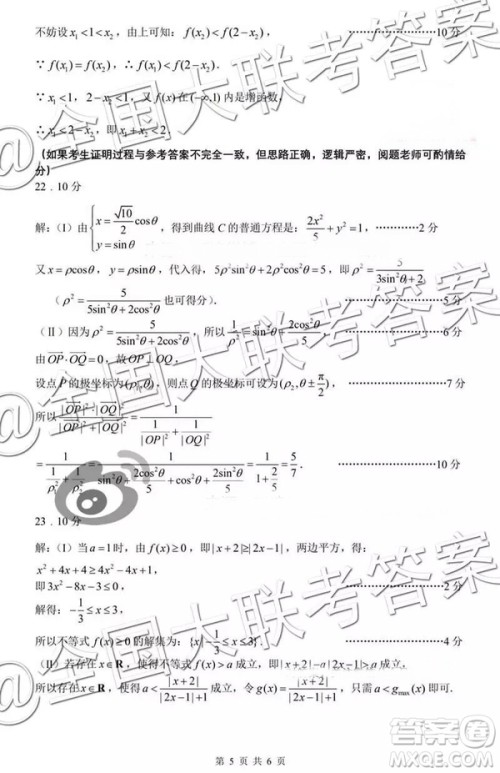 不妨设 x₁<1<x₂，由上可知：f(x₂)<f(2-x₂)， ⋯⋯⋯⋯⋯10 分
∵ f(x₁)=f(x₂)，∴ f(x₁)<f(2-x₂)．
∵ x₁<1，2-x₂<1，又 f(x) 在 (-∞,1) 内是增函数，
∴ x₁<2-x₂，即
(如果考生证明过程与参考答案不完全一致，但思路正确，逻辑严密，阅题老师可酌情给
分)
22．10 分
解：(Ⅰ) 由 {x=(√10/2)cosθ, y=sinθ 得到曲线 C 的普通方程是：2x²/5+y²=1， ⋯⋯⋯⋯2 分
又 x=ρcosθ，y=ρsinθ，代入得，5ρ²sin²θ+2ρ²cos²θ=5，即 ρ²=5/(3sin²θ+2)
(ρ²=5/(5sin²θ+2cos²θ) 也可得分)． ⋯⋯⋯⋯⋯5 分
(Ⅱ) 因为 ρ²=5/(5sin²θ+2cos²θ)，所以 1/ρ²=sin²θ+2cos²θ/5，
由 OP·OQ=0，故 OP⊥OQ，
设点 P 的极坐标为 (ρ₁,θ)，则点 Q 的极坐标可设为 (ρ₂,θ±π/2)， ⋯⋯⋯7 分
所以 |OP|²·|OQ|²/(|OP|²+|OQ|²)=1/(1/|OP|²+1/|OQ|²)
=1/(1/ρ₁²+1/ρ₂²)=1/(sin²θ+2cos²θ/5+cos²θ+2sin²θ/5)=1/(1+2/5)=5/7． ⋯⋯⋯⋯⋯⋯10 分
23．10 分
解：(Ⅰ) 当 a=1 时，由 f(x)≥0，即 |x+2|≥|2x-1|，两边平方，得：
x²+4x+4≥4x²-4x+1，
即 3x²-8x-3≤0，
解得：-1/3≤x≤3，
所以不等式 f(x)≥0 的解集为：{x|-1/3≤x≤3}． ⋯⋯⋯⋯⋯4 分
(Ⅱ) 若存在 x∈R，使得不等式 f(x)>a 成立，即 |x+2|-a|2x-1|>a 成立，
所以存在 x∈R，使得 a<|x+2|/(|2x-1|+1) 成立，令 g(x)=|x+2|/(|2x-1|+1)，只需 a<g_max(x) 即可．
第 5 页 共 6 页
@全国大联考答案
@全国大联考答案
@全国大联考答案
答案圈
MXQE.COM